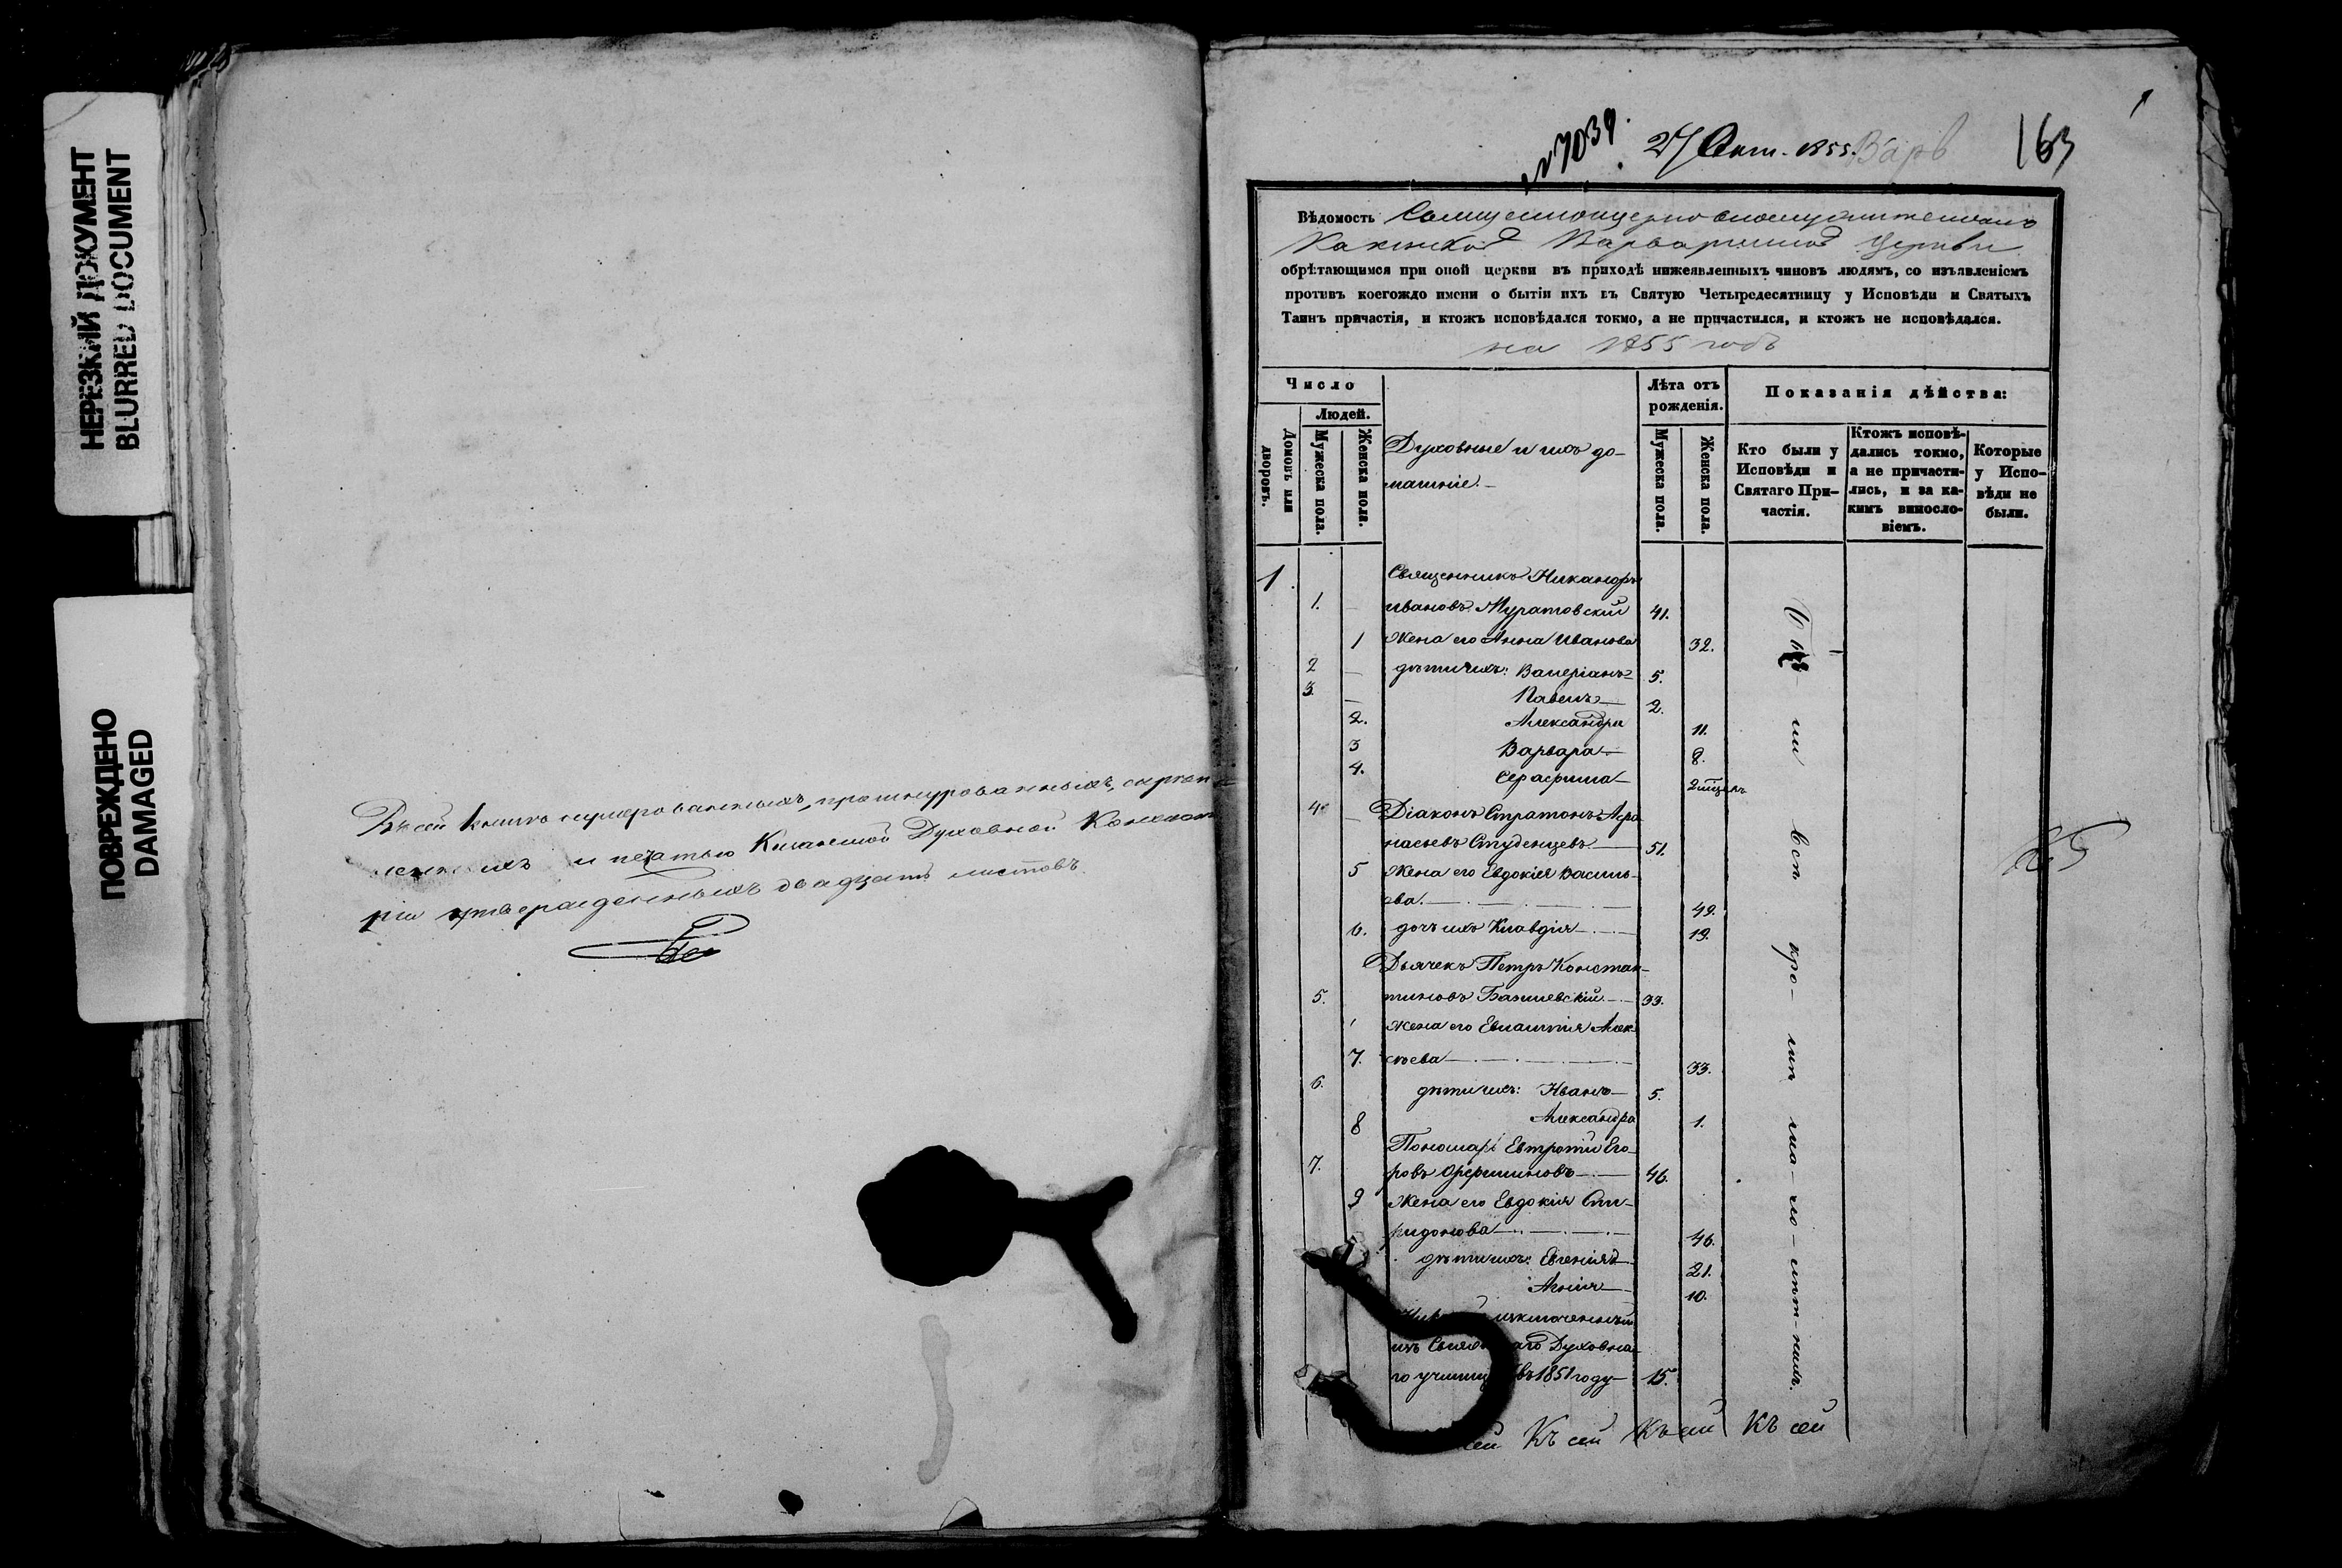 НЕРЕЗКИЙ ДОКУМЕНТ
BLURRED DOCUMENT
ПОВРЕЖДЕНО
DAMAGED
Въ сей книгѣ нумерованныхъ, прошнурованныхъ, скрѣп
ленныхъ и печатью Казанской Духовной Консисто
ріи утвержденныхъ двадцать листовъ
№ 7039. 27 Окт. 1855. Варв 163
Вѣдомость
Варваринской Церкви
обрѣтающимся при оной церкви въ приходѣ нижеявленныхъ чиновъ людямъ, со изъявленіемъ
противъ коегождо имени о бытіи ихъ въ Святую Четыредесятницу у Исповѣди и Святыхъ
Таинъ причастія, и ктожъ исповѣдался токмо, а не причастился, и ктожъ не исповѣдался.
на 1855 годъ
Число
Людей.
Домовъ или дворовъ.
Мужеска пола.
Женска пола.
Духовные и ихъ до-
машніе.
Лѣта отъ рожденія.
Мужеска пола.
Женска пола.
Показанія дѣйства:
Кто были у Исповѣди и Святаго При-частія.
Ктожъ исповѣ-дались токмо, а не причасти-лись, и за ка-кимъ виносло-віемъ.
Которые у Испо-вѣди не были.
1 Священникъ Никандръ
1. Ивановъ Муратовскій 41.
1 Жена его Анна Иванова 32.
2 дѣти ихъ: Валеріанъ 5.
3. Павелъ 2.
2. Александра 11.
3 Варвара 8.
4. Серафима 2
4. Діаконъ Стратонъ Афа
насьевъ Студенцевъ 51.
5 Жена его Евдокія Василь-
ева. 49.
6. дочь ихъ Клавдія 19.
Дьячекъ Петръ Констан-
5. тиновъ 33.
жена его Евлампія Алек
7. сѣева 33.
6. дѣти ихъ: Иванъ 5.
8 Александра 1.
Пономарь Евтропій Его-
7. ровъ 46.
9 Жена его Евдокія Спи-
ридонова 46.
дѣти ихъ: Евгенія 21.
Анна 10.
исключенный
изъ Духовна
го училищ въ 1851 году 15.
Бы- ли всѣ кро- мѣ ма- ло- лѣт- нихъ.
сей Къ сей Къ сей Къ сей